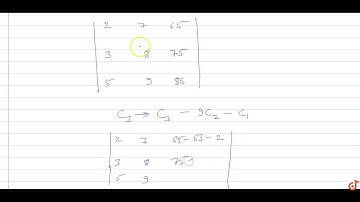 2 7 65
3 8 75
5 9 86
C₃ → C₃ - 9C₂ - C₁
2 7 65-63-2
3 8 75
5 9